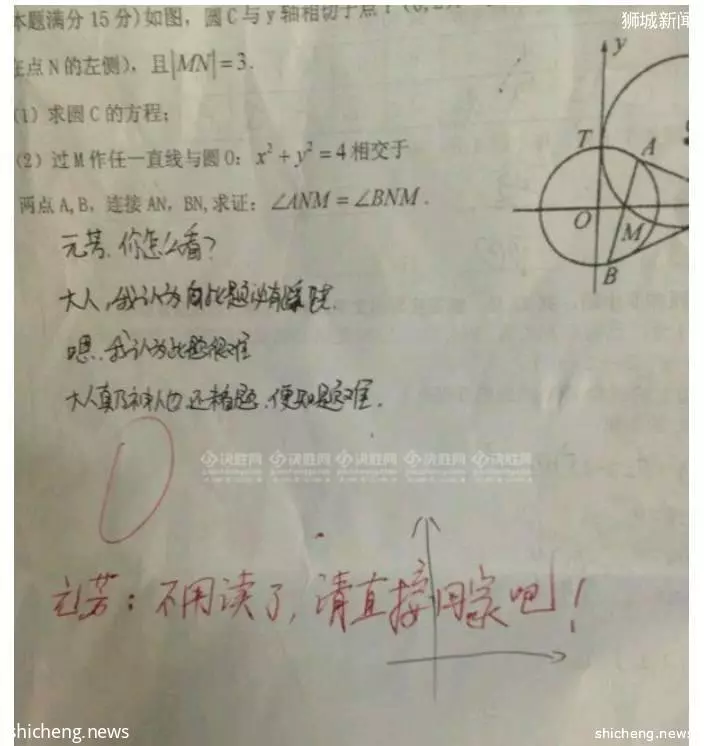 狮城新闻
本题满分 15 分)如图, 圆 C 与 y 轴相切于点 T (0, 2),
在点 N 的左侧), 且|MN|=3.
(1) 求圆 C 的方程;
(2) 过 M 作任一直线与圆 O: x²+y²=4 相交于
两点 A, B, 连接 AN, BN, 求证: ∠ANM=∠BNM.
y
T
A
O
M
B
元芳,你怎么看?
大人,我认为此题没有
嗯,我认为此题很难
大人真乃神人也,还 题,便知题难.
决胜网 决胜网 决胜网 决胜网 决胜网
0
元芳:不用读了,请直接回家吧!
shicheng.news
shicheng.news